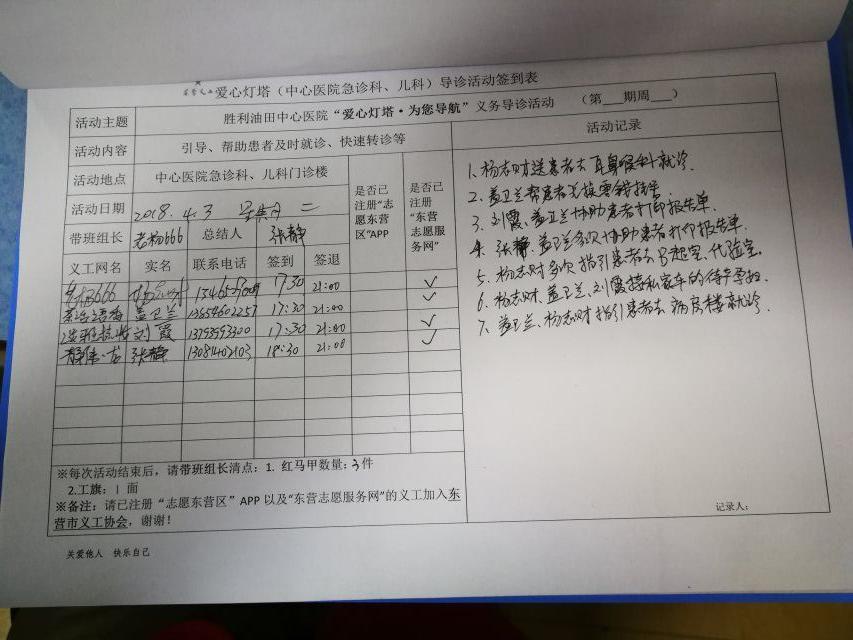 爱心灯塔（中心医院急诊科、儿科）导诊活动签到表
活动主题 胜利油田中心医院“爱心灯塔·为您导航”义务导诊活动 （第___期周___）
活动内容 引导、帮助患者及时就诊、快速转诊等
活动地点 中心医院急诊科、儿科门诊楼
活动日期 2018.4.3 星期 二
带班组长 老杨666 总结人 张静
是否已注册“志愿东营区”APP
是否已注册“东营志愿服务网”
义工网名 实名 联系电话 签到 签退
666 7:30 21:00 ✓
盖卫兰 13654602257 17:30 21:00 ✓
刘霞 13793993300 17:30 21:00 ✓
张静 13081402103 18:30 21:00 ✓
※每次活动结束后，请带班组长清点：1. 红马甲数量：3件
2.工旗：1 面
※备注：请已注册“志愿东营区”APP以及“东营志愿服务网”的义工加入东
营市义工协会，谢谢！
活动记录
1.杨志财送患者去耳鼻喉科就诊.
2.盖卫兰帮患者换零钱挂号.
3.刘霞、盖卫兰协助患者打印报告单.
4.张静、盖卫兰多次协助患者打印报告单.
5.杨志财多次指引患者去B超室、化验室.
6.杨志财、盖卫兰、刘霞接私家车的待产孕妇.
7.盖卫兰、杨志财指引患者去病房楼就诊.
记录人：
关爱他人 快乐自己